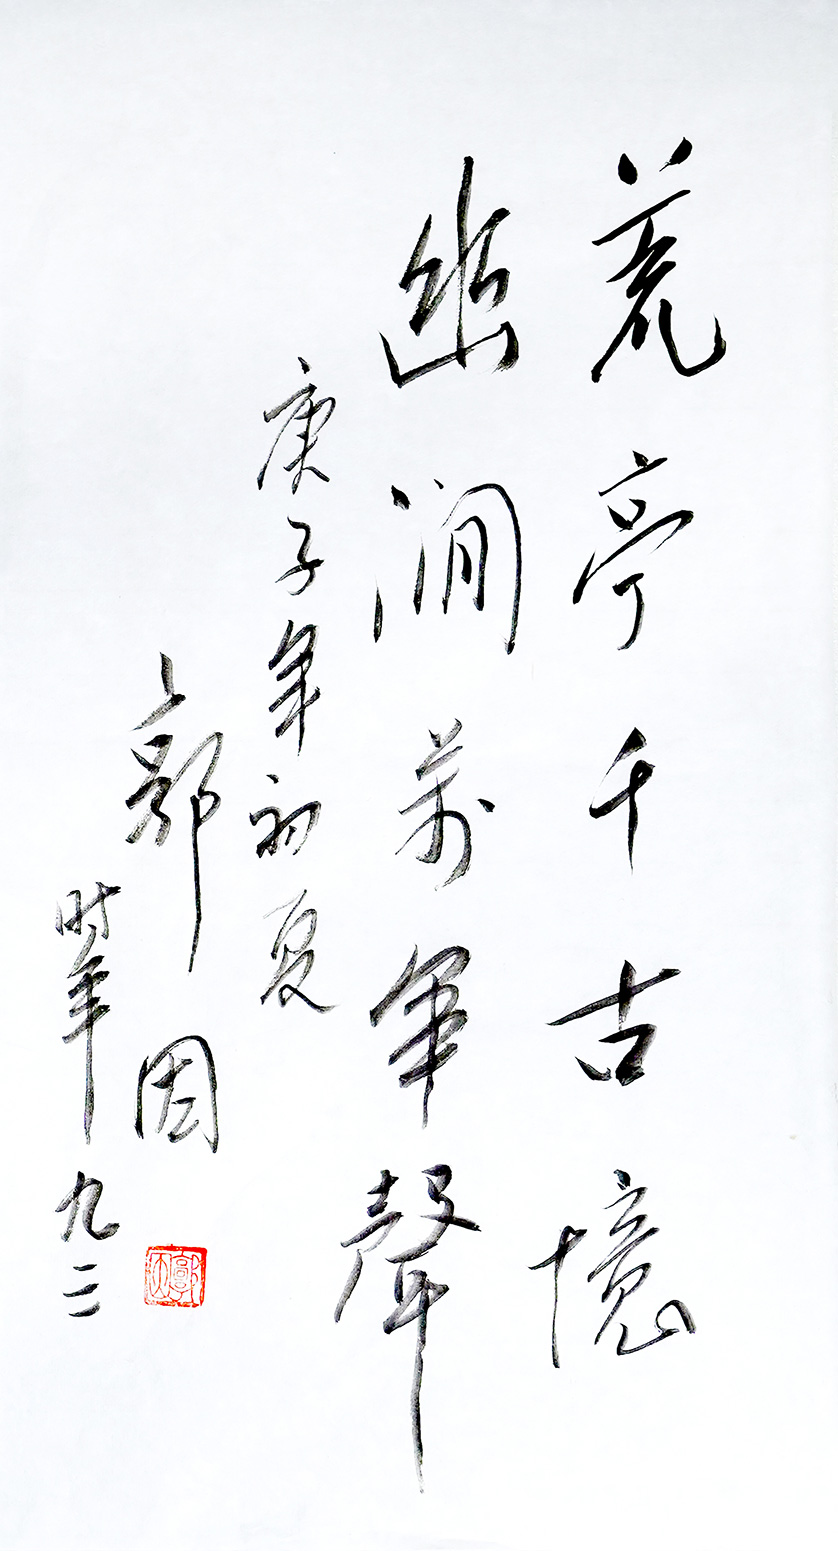 荒亭千古憶
幽澗萬軍聲
庚子年初夏
郭因
時年九二